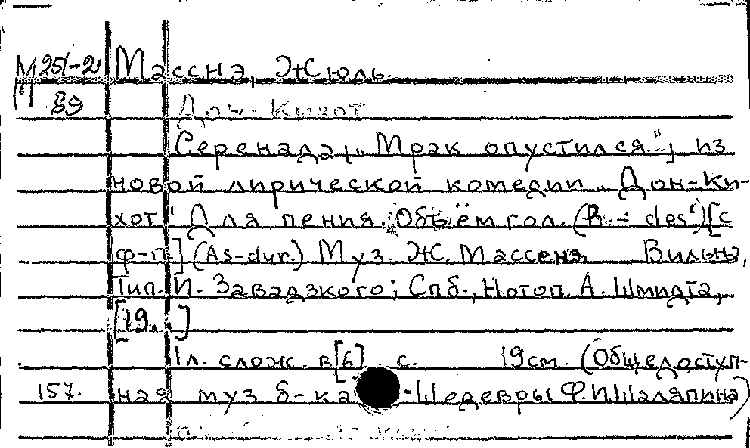 М 251-2 Массне, Жюль
89 Дон-Кихот
Серенада „Мрак опустился", из
новой лирической комедии „Дон-Ки-
хот" Для пения. Объём гол. (B.- des') [с
ф-п] (As-dur.) Муз. Ж. Массенэ. Вильна,
Тип. И. Завадзкого; Спб., Нотоп. А. Шмидта,
[19..]
1 л. слож. в [6] с. 19 см. (Общедоступ-
157. ная муз б-ка -Шедевры Ф.И.Шаляпина)